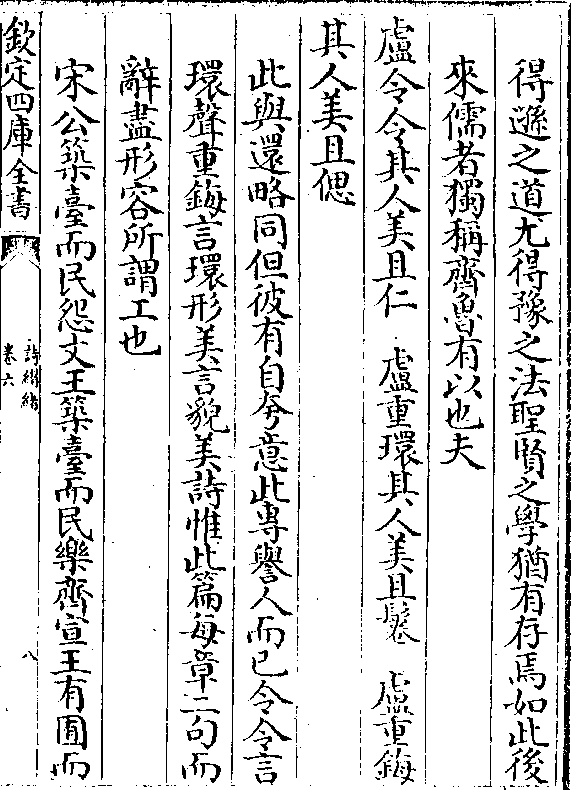 得遜之道尤得豫之法聖賢之學猶有存焉如此後
來儒者獨稱齊魯有以也夫
盧令令其人美且仁　盧重環其人美且鬈　盧重鋂
其人美且偲
此與還略同但彼有自夸意此專譽人而已令令言
環聲重鋂言環形美言貌美詩惟此篇每章二句而
辭盡形容所謂工也
宋公築臺而民怨文王築臺而民樂齊宣王有囿而
欽定四庫全書
詩纘緒
卷六
八